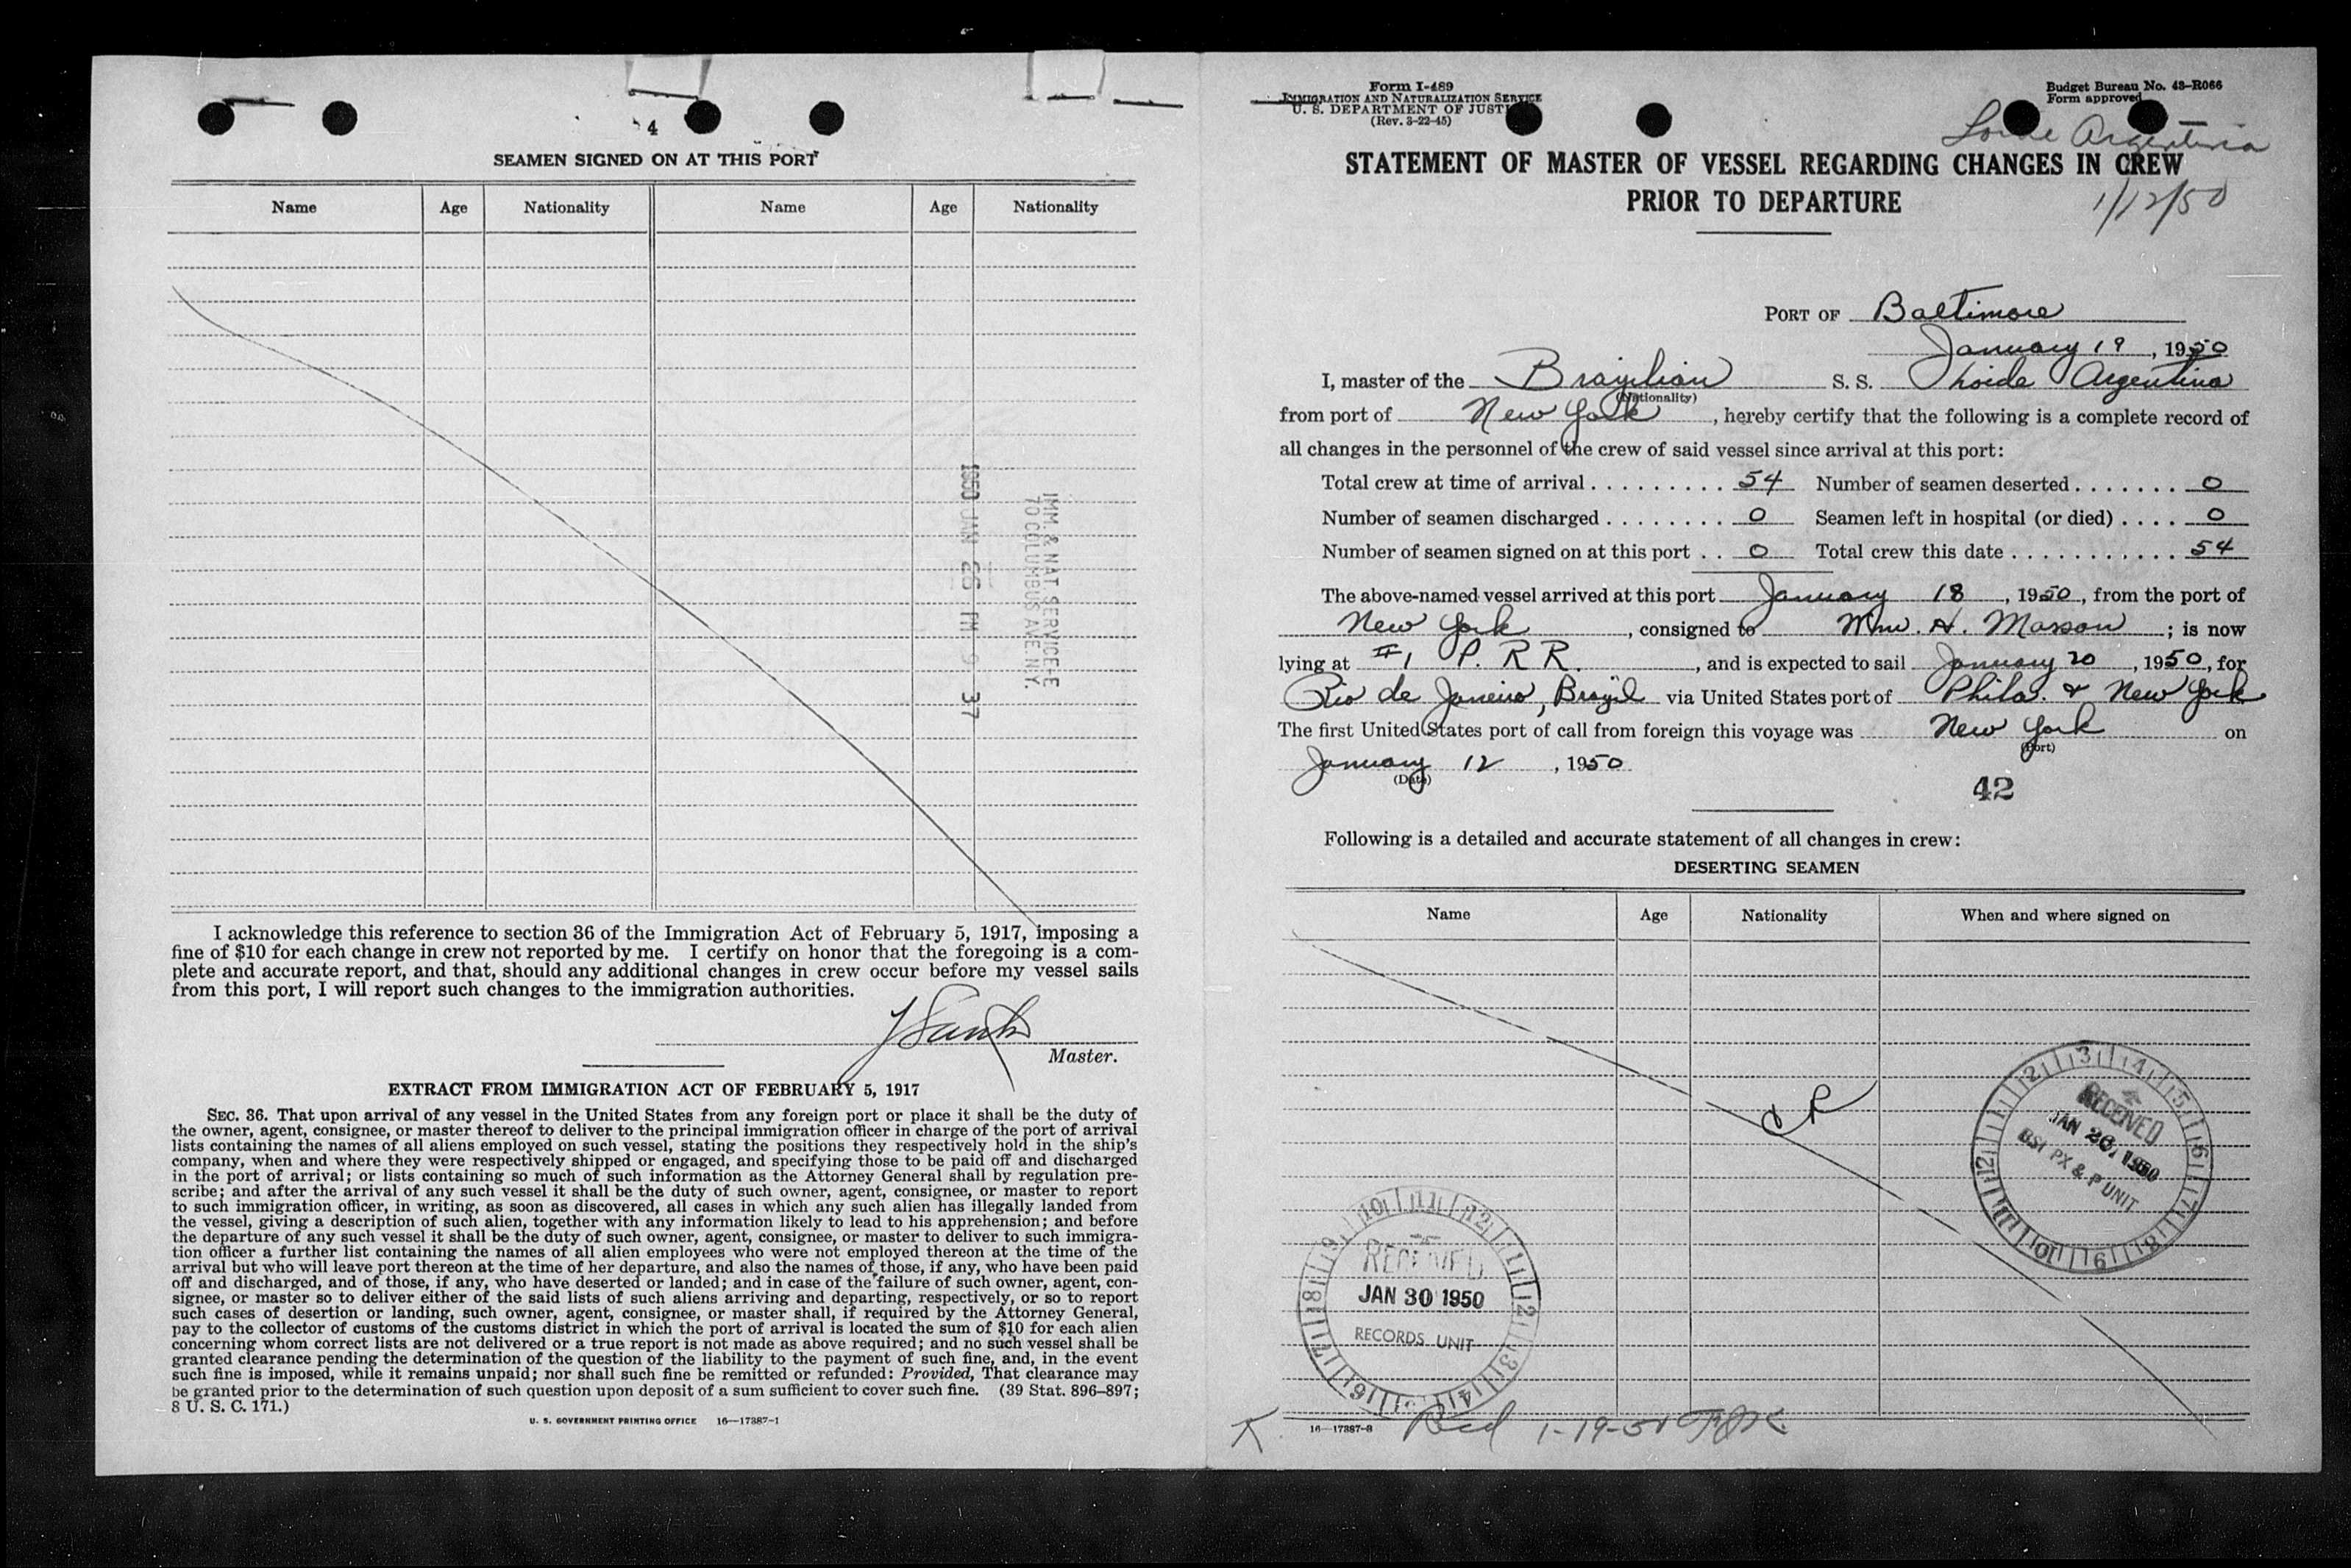 4
SEAMEN SIGNED ON AT THIS PORT
Name Age Nationality Name Age Nationality
1950 JAN 26 PM 9 37
IMM. & NAT. SERVICE
70 COLUMBUS AVE. N.Y.
I acknowledge this reference to section 36 of the Immigration Act of February 5, 1917, imposing a
fine of $10 for each change in crew not reported by me. I certify on honor that the foregoing is a com-
plete and accurate report, and that, should any additional changes in crew occur before my vessel sails
from this port, I will report such changes to the immigration authorities.
Master.
EXTRACT FROM IMMIGRATION ACT OF FEBRUARY 5, 1917
SEC. 36. That upon arrival of any vessel in the United States from any foreign port or place it shall be the duty of
the owner, agent, consignee, or master thereof to deliver to the principal immigration officer in charge of the port of arrival
lists containing the names of all aliens employed on such vessel, stating the positions they respectively hold in the ship's
company, when and where they were respectively shipped or engaged, and specifying those to be paid off and discharged
in the port of arrival; or lists containing so much of such information as the Attorney General shall by regulation pre-
scribe; and after the arrival of any such vessel it shall be the duty of such owner, agent, consignee, or master to report
to such immigration officer, in writing, as soon as discovered, all cases in which any such alien has illegally landed from
the vessel, giving a description of such alien, together with any information likely to lead to his apprehension; and before
the departure of any such vessel it shall be the duty of such owner, agent, consignee, or master to deliver to such immigra-
tion officer a further list containing the names of all alien employees who were not employed thereon at the time of the
arrival but who will leave port thereon at the time of her departure, and also the names of those, if any, who have been paid
off and discharged, and of those, if any, who have deserted or landed; and in case of the failure of such owner, agent, con-
signee, or master so to deliver either of the said lists of such aliens arriving and departing, respectively, or so to report
such cases of desertion or landing, such owner, agent, consignee, or master shall, if required by the Attorney General,
pay to the collector of customs of the customs district in which the port of arrival is located the sum of $10 for each alien
concerning whom correct lists are not delivered or a true report is not made as above required; and no such vessel shall be
granted clearance pending the determination of the question of the liability to the payment of such fine, and, in the event
such fine is imposed, while it remains unpaid; nor shall such fine be remitted or refunded: Provided, That clearance may
be granted prior to the determination of such question upon deposit of a sum sufficient to cover such fine. (39 Stat. 896-897;
8 U. S. C. 171.)
U. S. GOVERNMENT PRINTING OFFICE 16—17387-1
Form I-489
IMMIGRATION AND NATURALIZATION SERVICE
U. S. DEPARTMENT OF JUSTICE
(Rev. 3-22-45)
Budget Bureau No. 43-R066
Form approved
Loide Argentina
STATEMENT OF MASTER OF VESSEL REGARDING CHANGES IN CREW
PRIOR TO DEPARTURE
1/12/50
PORT OF Baltimore
January 19, 1950
I, master of the Brazilian S. S. Loide Argentina
(Nationality)
from port of New York, hereby certify that the following is a complete record of
all changes in the personnel of the crew of said vessel since arrival at this port:
Total crew at time of arrival . . . . . . . . . 54 Number of seamen deserted . . . . . . . 0
Number of seamen discharged . . . . . . . . 0 Seamen left in hospital (or died) . . . . 0
Number of seamen signed on at this port . . 0 Total crew this date . . . . . . . . . . . 54
The above-named vessel arrived at this port January 18, 1950, from the port of
New York, consigned to Wm. H. Masson; is now
lying at #1 P. R R., and is expected to sail January 20, 1950, for
Rio de Janeiro, Brazil via United States port of Phila. & New York
The first United States port of call from foreign this voyage was New York on
(Port)
January 12, 1950
(Date)
42
Following is a detailed and accurate statement of all changes in crew:
DESERTING SEAMEN
Name Age Nationality When and where signed on
RECEIVED
JAN 26, 1950
BSI PX & P UNIT
RECEIVED
JAN 30 1950
RECORDS UNIT
K
16—17387-3